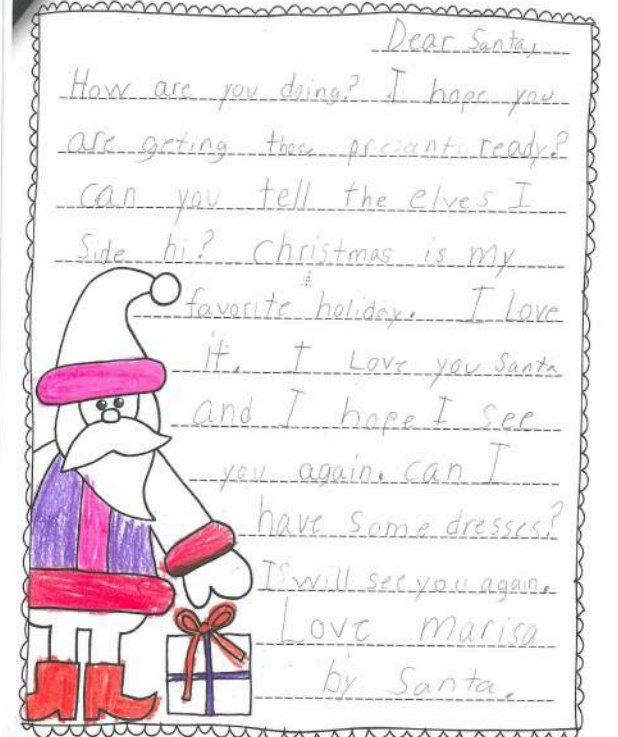 Dear Santa,
How are you doing? I hope you
are geting those presants ready?
can you tell the elves I
Side hi? christmas is my
favorite holiday. I Love
it. I Love you Santa
and I hope I see
you again. can I
have some dresses?
I will see you again.
Love marisa
by Santa.